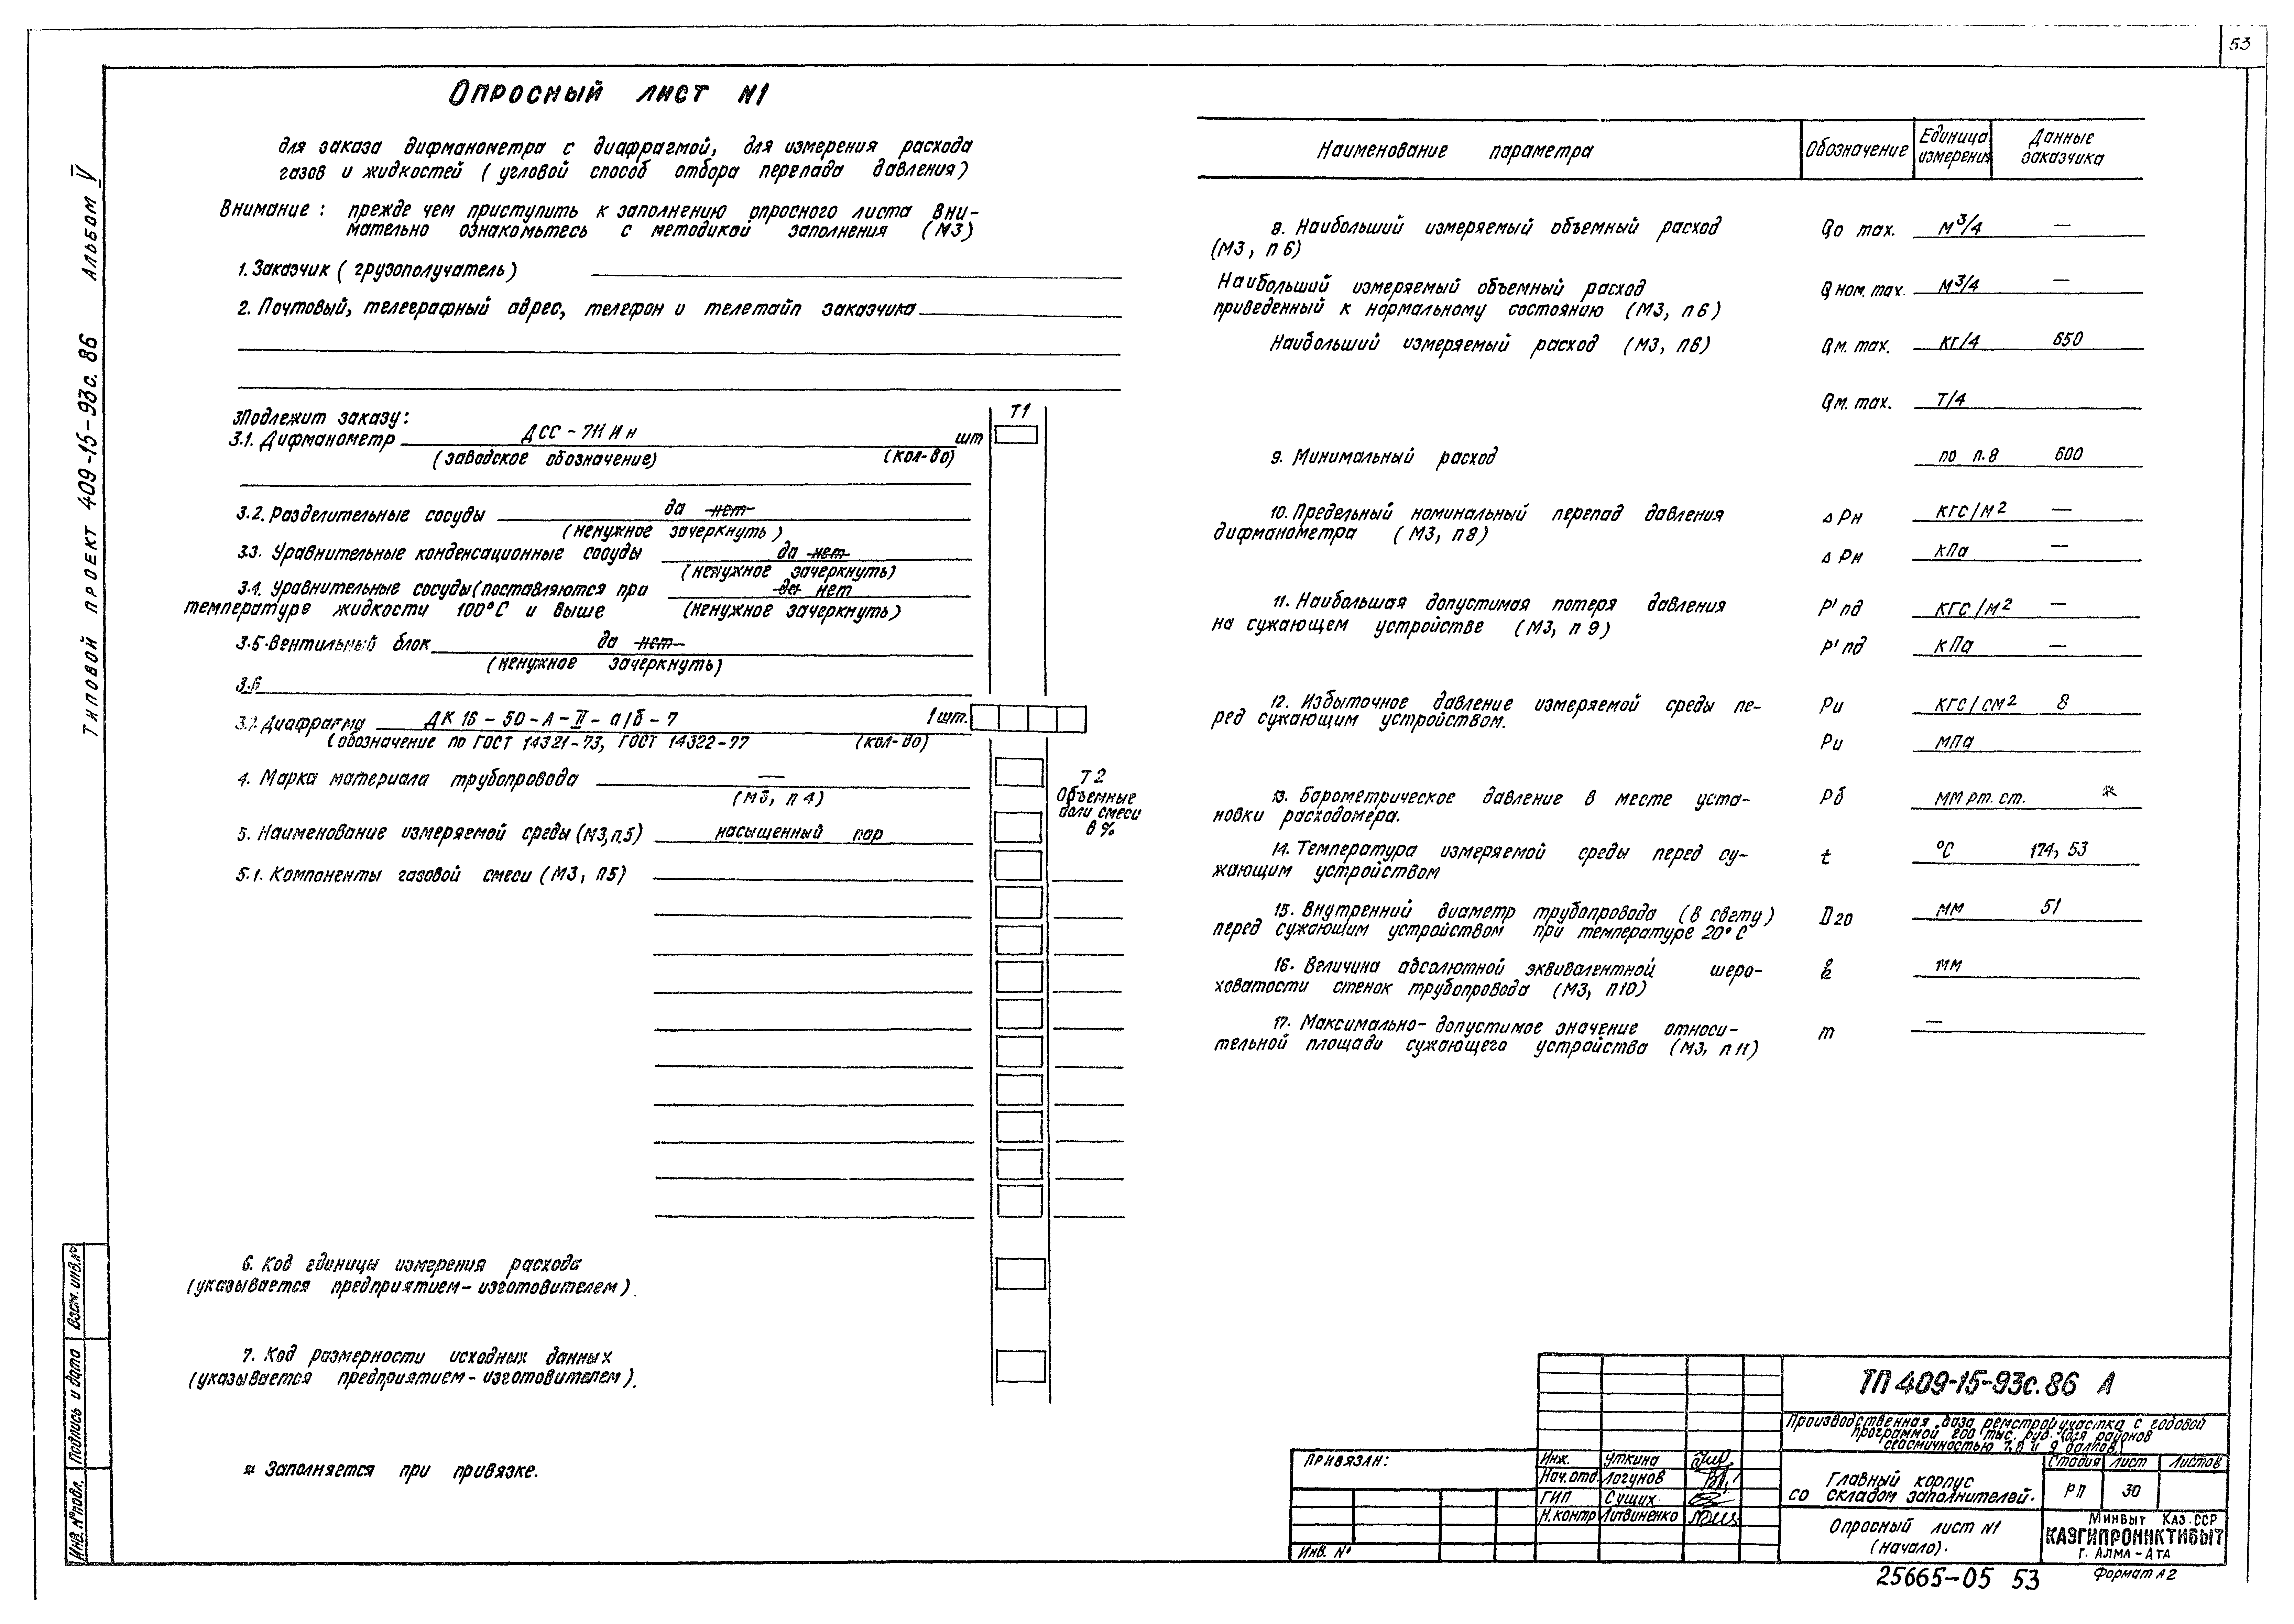 53
Опросный лист N1
для заказа дифманометра с диафрагмой, для измерения расхода
газов и жидкостей ( угловой способ отбора перепада давления)
Внимание : прежде чем приступить к заполнению опросного листа вни-
мательно ознакомьтесь с методикой заполнения (М3)
1. Заказчик ( грузополучатель )
2. Почтовый, телеграфный адрес, телефон и телетайп заказчика
3Подлежит заказу:
Т1
3.1. Дифманометр ДСС - 711 И н шт
( заводское обозначение) (кол-во)
3.2. Разделительные сосуды да нет
(ненужное зачеркнуть )
3.3. Уравнительные конденсационные сосуды да нет
(ненужное зачеркнуть)
3.4. Уравнительные сосуды(поставляются при да нет
температуре жидкости 100°С и выше (ненужное зачеркнуть )
3.5.Вентильный блок да нет
(ненужное зачеркнуть)
3.6
3.7. Диафрагма ДК 16 - 50 - А - II - а/б - 7 1 шт.
(обозначение по ГОСТ 14321-73, ГОСТ 14322-77 (кол-во)
4. Марка материала трубопровода —
(М3, п 4)
Т 2
Объемные
доли смеси
в %
5. Наименование измеряемой среды (М3,п.5) насыщенный пар
5.1. Компоненты газовой смеси ( М3, п5)
6. Код единицы измерения расхода
(указывается предприятием-изготовителем).
7. Код размерности исходных данных
(указывается предприятием-изготовителем).
* Заполняется при привязке.
Наименование параметра Обозначение Единица измерения Данные заказчика
8. Наибольший измеряемый объемный расход Qо max. м³/ч —
(М3, п 6)
Наибольший измеряемый объемный расход Q ном. max. м³/ч —
приведенный к нормальному состоянию (М3, п 6)
Наибольший измеряемый расход (М3, п6) Qм. max. кг/ч 650
Qм. max. Т/ч
9. Минимальный расход по п.8 600
10. Предельный номинальный перепад давления Δ Рн кгс/м² —
дифманометра ( М3, п8)
Δ Рн кПа —
11. Наибольшая допустимая потеря давления Р' пд кгс/м² —
на сужающем устройстве (М3, п 9)
Р' пд кПа —
12. Избыточное давление измеряемой среды пе- Ри кгс/см² 8
ред сужающим устройством.
Ри мПа
13. Барометрическое давление в месте уста- Рб мм рт. ст. *
новки расходомера.
14. Температура измеряемой среды перед су- t °С 174, 53
жающим устройством
15. Внутренний диаметр трубопровода (в свету) D20 мм 51
перед сужающим устройством при температуре 20° С
16. Величина абсолютной эквивалентной шеро- k мм
ховатости стенок трубопровода (М3, п10)
17. Максимально-допустимое значение относи- m —
тельной площади сужающего устройства (М3, п 11)
Типовой проект 409-15-93с. 86 Альбом V
Взам. инв.№
Подпись и дата
Инв. № подл.
ТП 409-15-93с. 86 А
Производственная база ремстройучастка с годовой
программой 200 тыс. руб. (для районов
сейсмичностью 7, 8 и 9 баллов)
Привязан:
Инв. №
Инж. Уткина
Нач. отд. Логунов
ГИП Сущих
Н.контр Литвиненко
Главный корпус
со складом заполнителей.
Стадия Лист Листов
РП 30
Опросный лист N1
(начало).
Минбыт Каз.ССР
КАЗГИПРОНИКТИБЫТ
г. Алма-Ата
25665-05 53
Формат А2